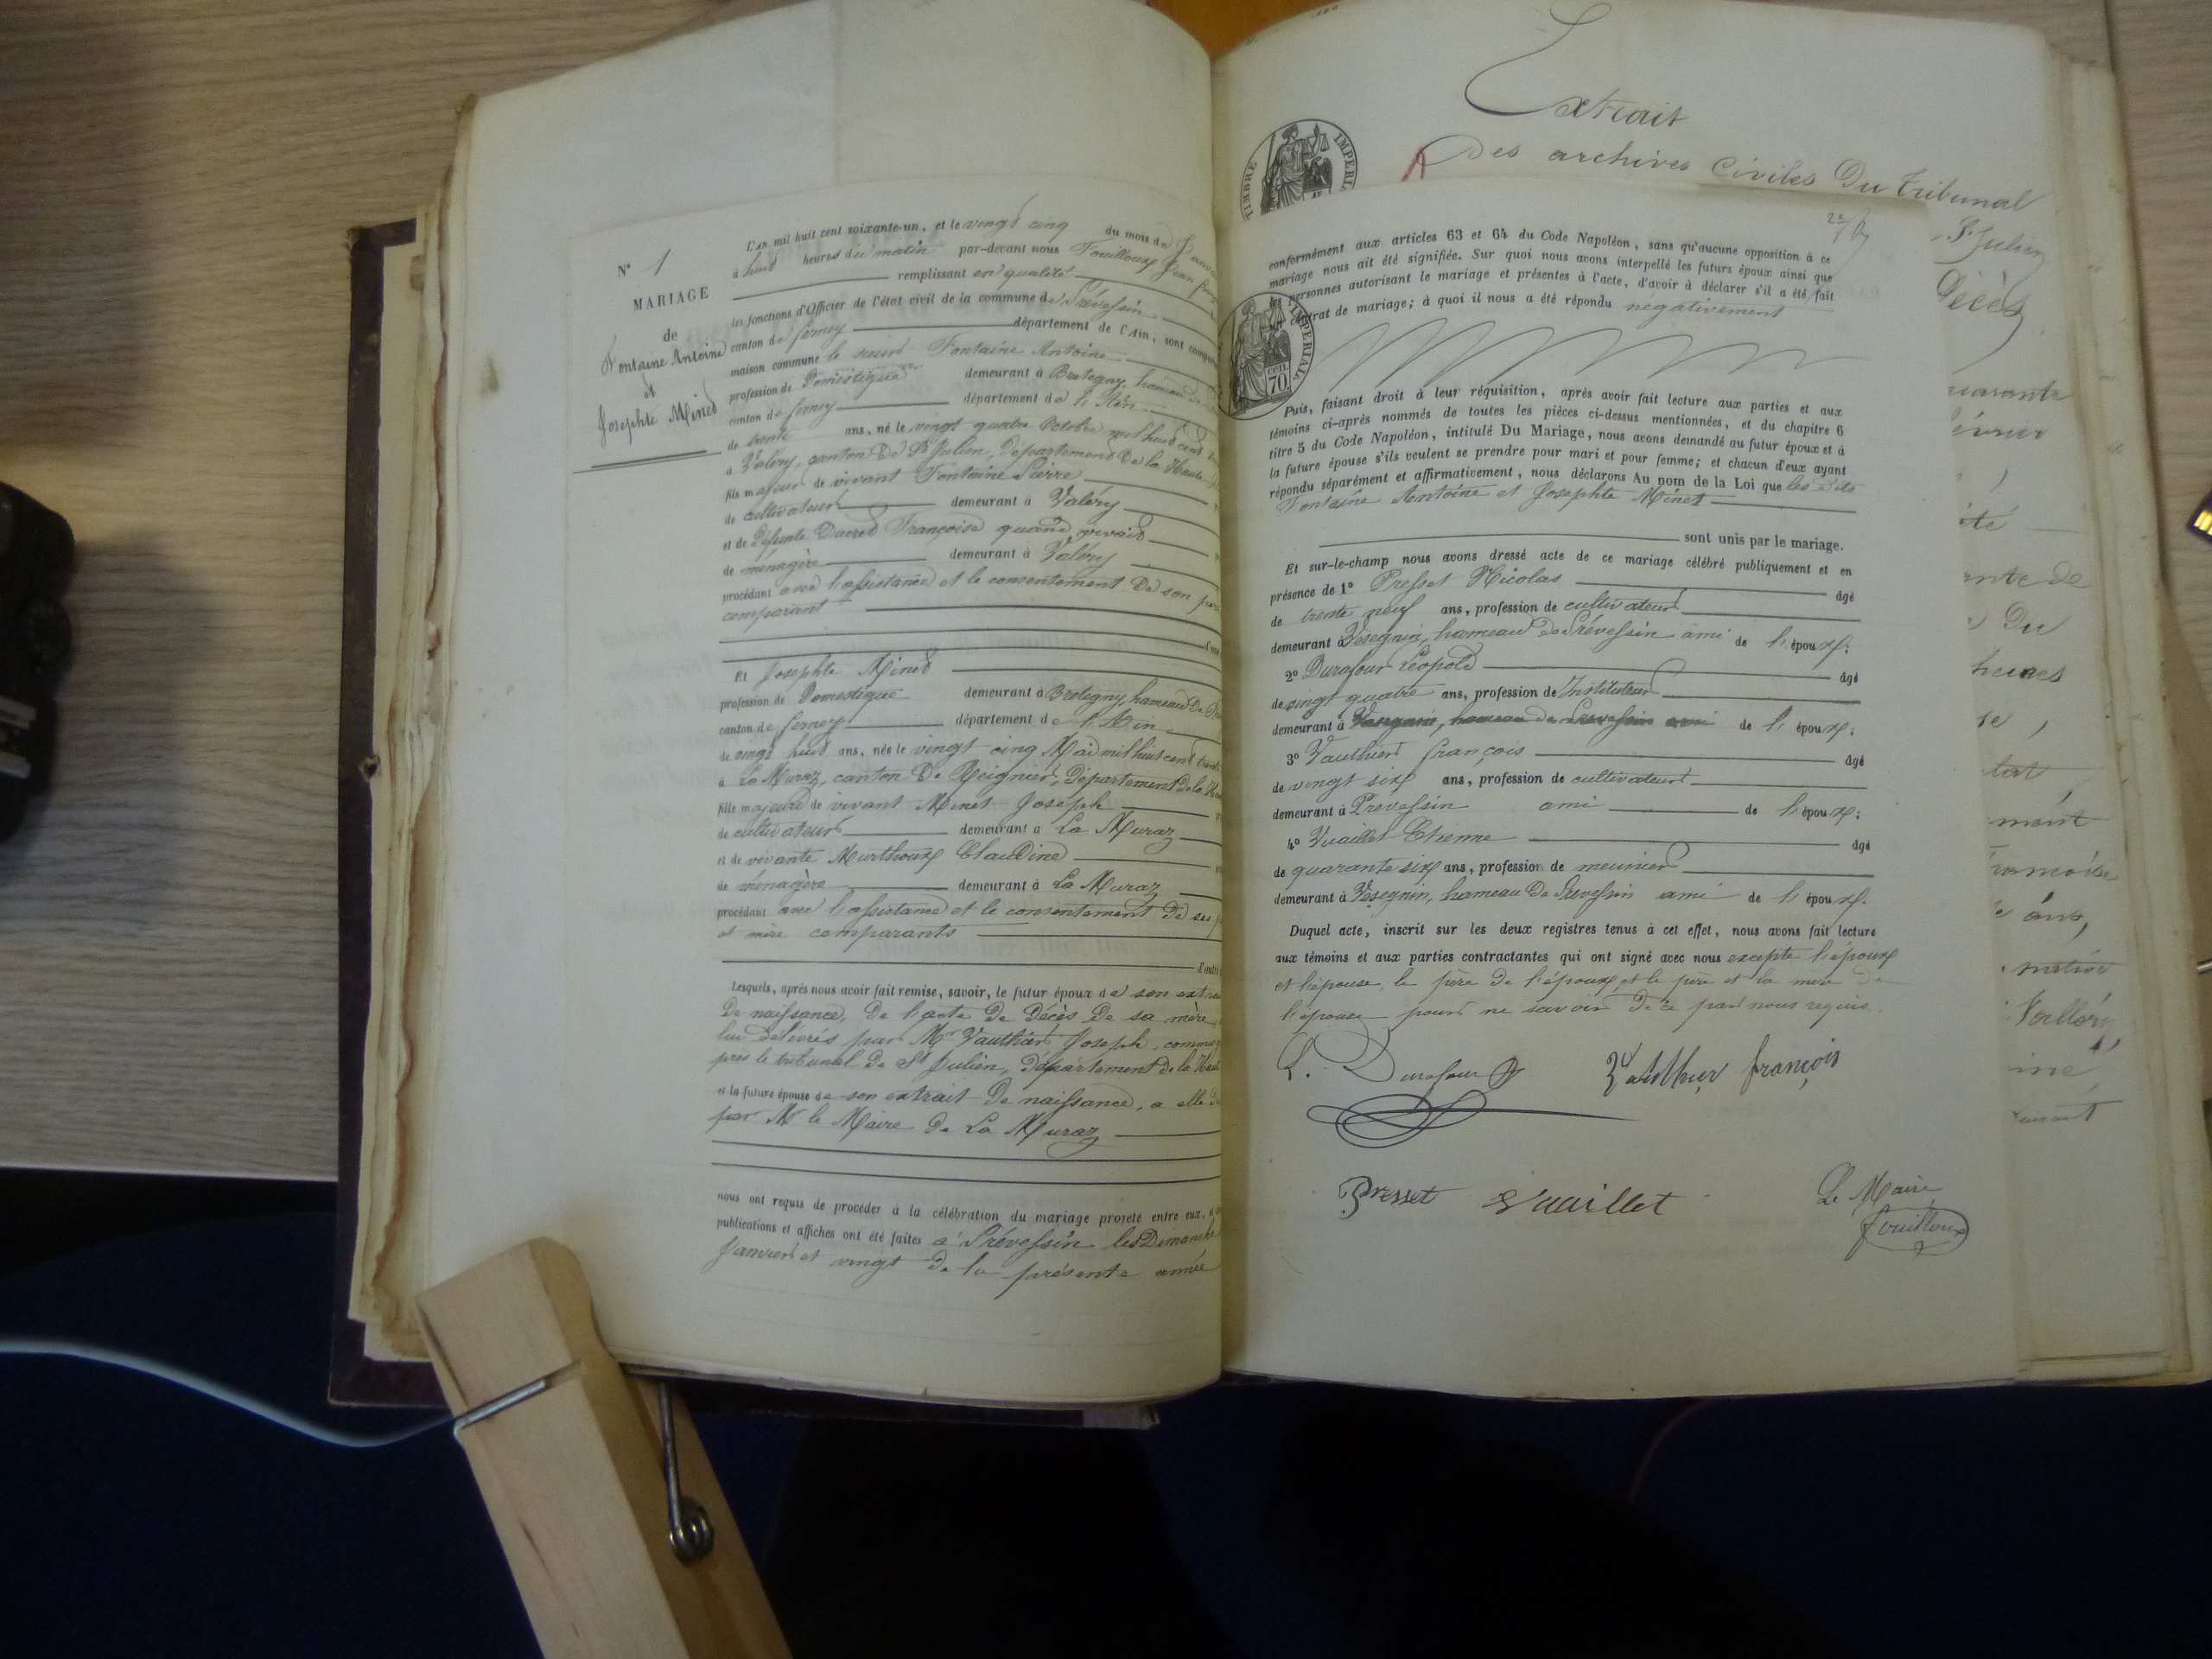 N° 1
MARIAGE
de
Fontaine Antoine
et
Josephte Minet
L'AN mil huit cent soixante-un, et le vingt cinq du mois de
à huit heures du matin par-devant nous Fouilloux Jean
remplissant en qualité
les fonctions d'Officier de l'état civil de la commune de Prévessin
canton de ferney département de l'Ain, sont
maison commune le sieur Fontaine Antoine
profession de Domestique demeurant à Bretegny, hameau de
canton de ferney département de l'Ain
de trente ans, né le vingt quatre Octobre mil huit cent
à Valéry, canton De St Julien, Département De la Haute
fils majeur de vivant Fontaine Pierre
de cultivateur demeurant à Valéry
et de Défunte Ducret Françoise quand vivait
de ménagère demeurant à Valéry
procédant avec l'assistance et le consentement De son père
comparant
Et Josephte Minet
profession de Domestique demeurant à Bretegny, hameau De
canton de ferney département de l'Ain
de vingt huit ans, née le vingt cinq Mai mil huit cent
à La Muraz, canton De Reignier, Département de la
fille majeure de vivant Minet Joseph
de cultivateur demeurant à La Muraz
et de vivante Murthoux Claudine
de ménagère demeurant à La Muraz
procédant avec l'assistance et le consentement De ses
et mère comparants
Lesquels, après nous avoir fait remise, savoir, le futur époux de son
De naissance, De l'acte De Décès De sa mère
lui délivrés par Mr Vauthier Joseph,
près le tribunal De St Julien, Département De la
et la future épouse de son extrait De naissance, a elle
par Mr le Maire De La Muraz
nous ont requis de procéder à la célébration du mariage projeté entre eux,
publications et affiches ont été faites a Prévessin les Dimanche
Janvier et vingt De la présente année
Extrait
Des archives Civiles Du Tribunal
St Julien
Décès
TIMBRE IMPERIAL
conformément aux articles 63 et 64 du Code Napoléon, sans qu'aucune opposition à ce
mariage nous ait été signifiée. Sur quoi nous avons interpellé les futurs époux ainsi que
les personnes autorisant le mariage et présentes à l'acte, d'avoir à déclarer s'il a été fait
contrat de mariage; à quoi il nous a été répondu négativement
IMPERIAL
CEN. 70.
Puis, faisant droit à leur réquisition, après avoir fait lecture aux parties et aux
témoins ci-après nommés de toutes les pièces ci-dessus mentionnées, et du chapitre 6
titre 5 du Code Napoléon, intitulé Du Mariage, nous avons demandé au futur époux et à
la future épouse s'ils veulent se prendre pour mari et pour femme; et chacun d'eux ayant
répondu séparément et affirmativement, nous déclarons Au nom de la Loi que les dits
Fontaine Antoine et Josephte Minet
sont unis par le mariage.
Et sur-le-champ nous avons dressé acte de ce mariage célébré publiquement et en
présence de 1° Presset Nicolas âgé
de trente neuf ans, profession de cultivateur
demeurant à Vesegnin, hameau De Prévessin ami de l'époux;
2° Durafour Léopold âgé
de vingt quatre ans, profession de Instituteur
demeurant à Vesegnin, hameau de Prevessin ami de l'époux;
3° Vauthier françois âgé
de vingt six ans, profession de cultivateur
demeurant à Prévessin ami de l'époux;
4° Vuaillet Etienne âgé
de quarante six ans, profession de meunier
demeurant à Vesegnin, hameau De Prevessin ami de l'époux.
Duquel acte, inscrit sur les deux registres tenus à cet effet, nous avons fait lecture
aux témoins et aux parties contractantes qui ont signé avec nous excepté l'époux
et l'épouse, le père De l'époux, et le père et la mère De
l'épouse pour ne savoir De ce par nous requis.
L. Durafour Vauthier françois
Presset Vuaillet
Le Maire
Fouilloux